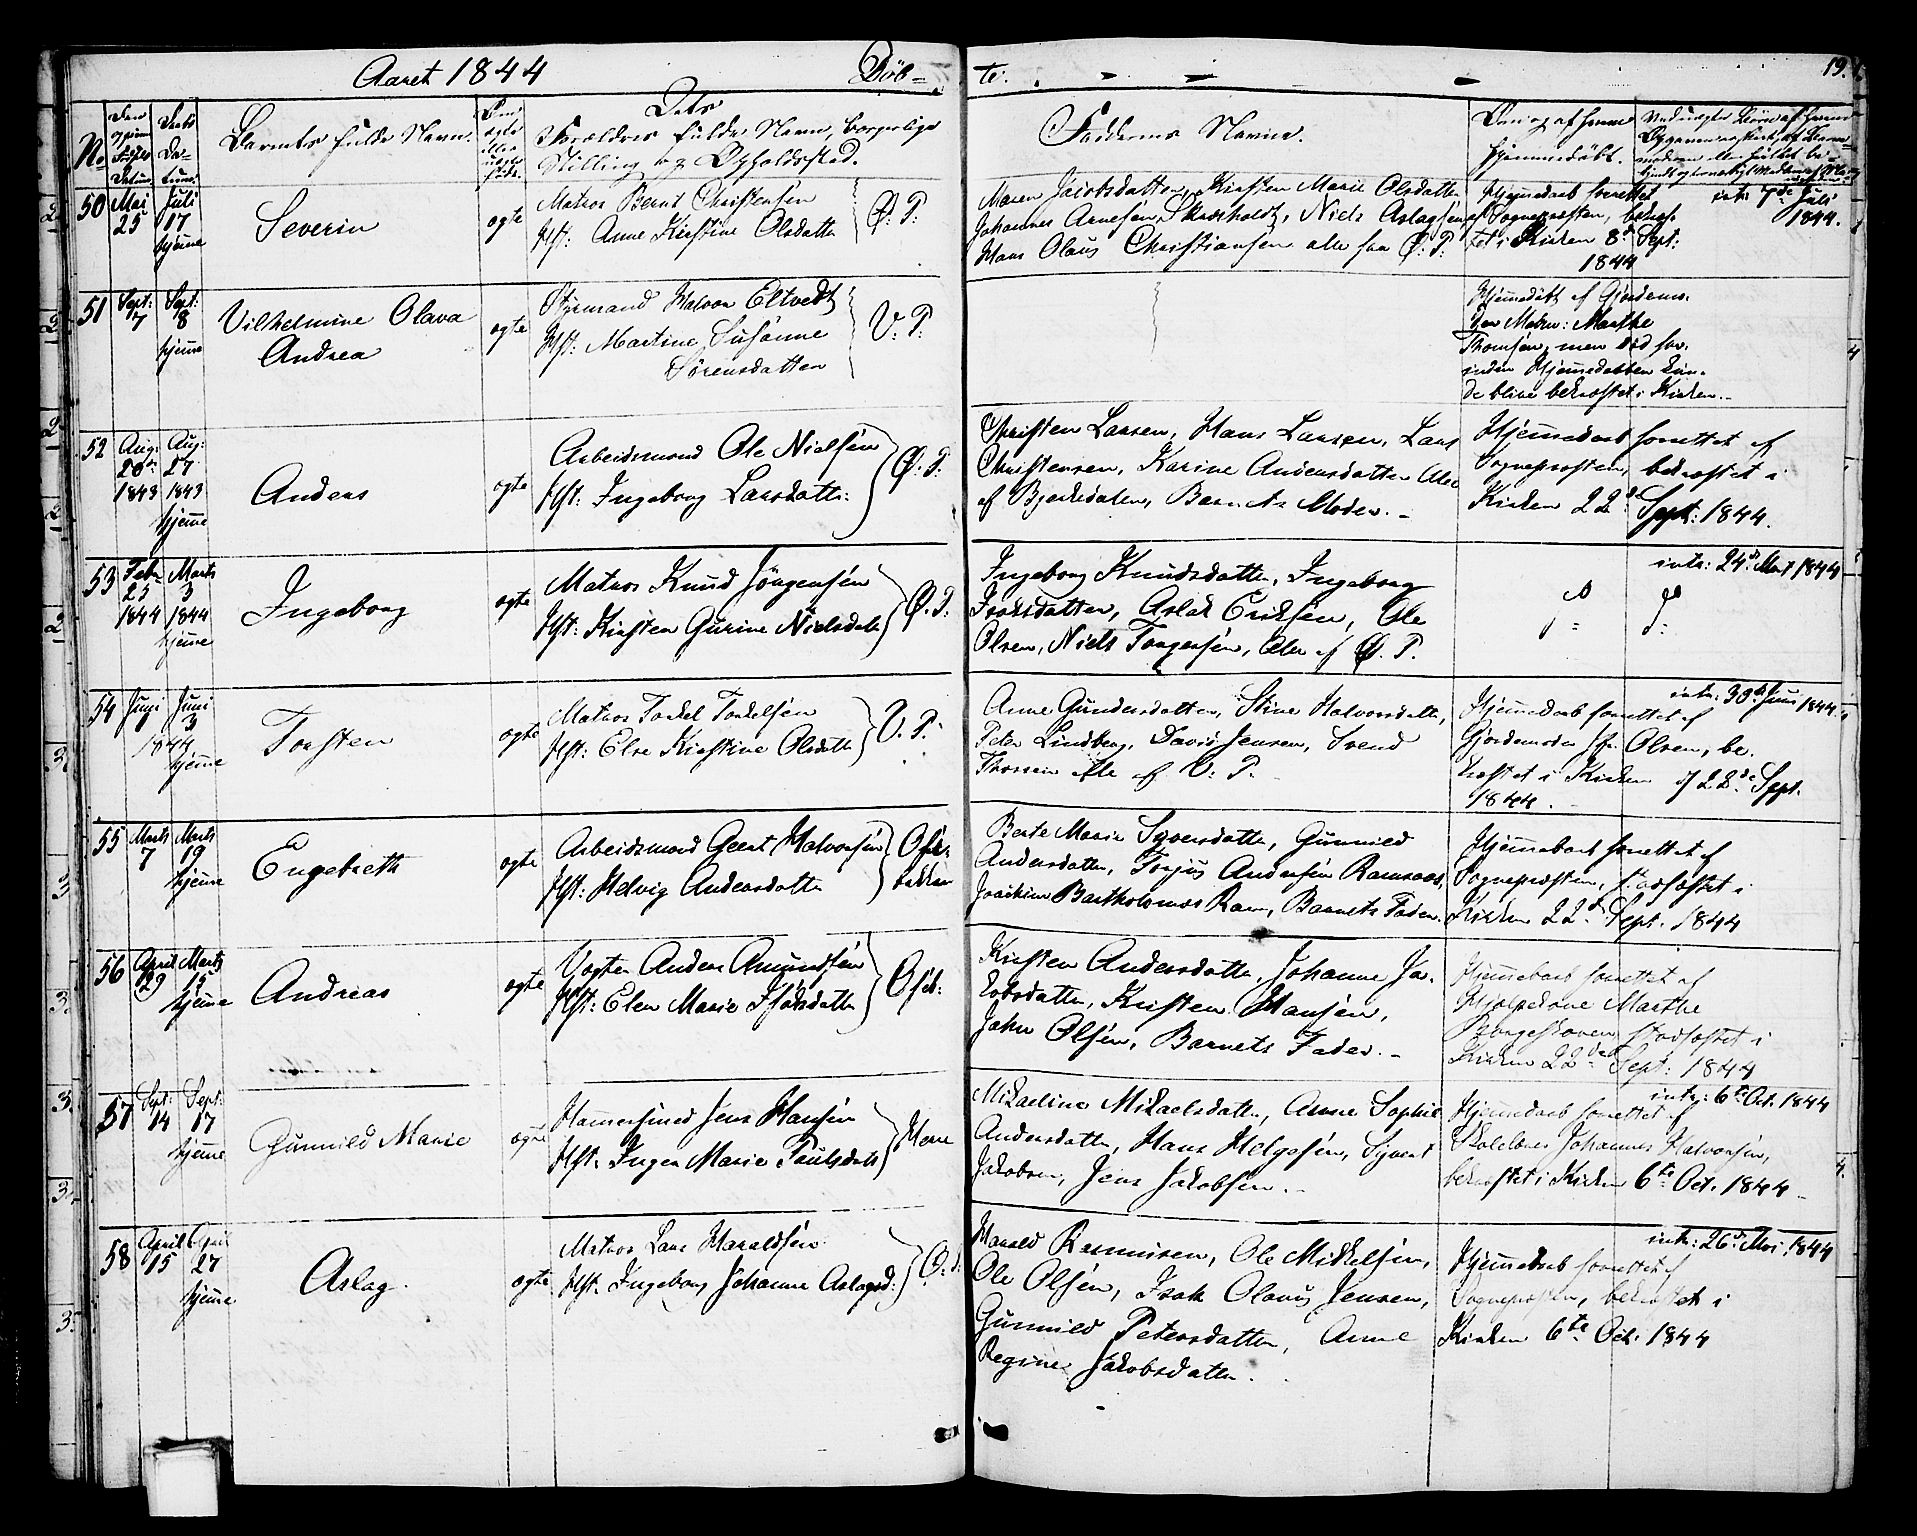 Aaret 1844 Döb-
te. 19.
No
Barnets fulde Navn.
Dets
Forældres fulde Navn, borgerlige
Stilling og Opholdssted.
Faddernes Navne.
Om og af hvem
hjemmedöbt.
50 Mai 25 Juli 17 hjemme
Severin
ægte
Matros Bernt Christensen
Hst: Anne Kirstine Olsdatter
Ø: P:
Maren Jacobsdatter, Kirsten Marie Olsdatter
Johannes Arnesen Skræholdt, Niels Aslagsen
Hans Olaus Christiansen alle fra Ø: P:
Hjemmedaab forrettet
af Sognepræsten, bekræf-
tet i Kirken 8de Sept:
1844
intr: 7de Juli
1844.
51 Sept: 7 Sept: 8 hjemme
Vilhelmine Olava
Andrea
ægte
Styrmand Halvor Eltvedt
Hst: Martine Susanne
Sörensdatter
V: P:
Hjemmedöbt af Gjordemo-
der Madm: Marthe
Thomsen, men död for-
inden Hjemmedaaben kun-
de blive bekræftet i Kirken.-
52 Aug: 20de 1843 Aug: 27 1843 hjemme
Anders
ægte
Arbeidsmand Ole Nielsen
Hst: Ingeborg Larsdatter:
Ø: P:
Christen Larsen, Hans Larsen, Lars
Christensen, Karine Andersdatter Alle
af Bjerkedalen, Barnets Moder. -
Hjemmedaab forrettet af
Sognepræsten, bekræftet i
Kirken 22de Sept: 1844.
53 Feb: 23 1844 Marts 3 1844 hjemme
Ingeborg
ægte
Matros Knud Jörgensen
Hst: Kirsten Gurine Nielsdatter
Ø. P:
Ingeborg Knudsdatter, Ingeborg
Isaksdatter, Aslak Eriksen, Ole
Olsen, Niels Torgersen, Alle af Ø. P.
intr: 24de Mart 1844
54 Juni 1 Juni 3 1844 hjemme
Torsten
ægte
Matros Torkel Torkelsen
Hst: Else Kirstine Olsdatter
V. P:
Anne Gundersdatter, Stine Halvorsdatter,
Peter Lindberg, David Jensen, Svend
Thorsen Alle af V: P.
Hjemmedaab forrettet af
Gjordemoder fr. Olsen, be-
kræftet i Kirken d 22de Sept.
1844.
intr: 30de Juni 1844.
55 Marts 7 Marts 19 hjemme
Engebreth
ægte
Arbeidsmand Geert Halvorsen
Hst: Helvig Andersdatter
Berte Marie Syversdatter, Gunnild
Andersdatter, Torjus Andersen Ramsaas,
Joachim Bartholomæs Ram, Barnets Fader.
Hjemmedaab forrettet af
Sognepræsten, stadfæstet i
Kirken 22de Sept. 1844
56 April 29 Marts 15 hjemme
Andreas
ægte
Vogter Anders Amundsen
Hst: Elen Marie Isaksdatter
Kirsten Andersdatter, Johanne Ja-
kobsdatter, Kristen Hansen,
John Olsen, Barnets Fader. -
Hjemmedaab forrettet af
Hjelpekone Marthe
Borgeskoven, stadfæstet i
Kirken 22de Sept: 1844
57 Sept: 14 Sept: 17 hjemme
Gunnild Marie
ægte
Hammersmed Jens Hansen
Hst. Inger Marie Paulsdatter
Mikaeline Mikaelsdatter, Anne Sophie
Andersdatter, Hans Helgesen, Syvert
Jakobsen, Jens Jakobsen. -
Hjemmedaab forrettet af
Skolelærer Johannes Halvorsen,
bekræftet i Kirken 6te Oct. 1844 -
intr: 6te Oct. 1844
58 April 15 April 27 hjemme
Aslag
ægte
Matros Lars Haraldsen
Hst. Ingeborg Johanne Aslagsd:
Harald Rasmusen, Ole Mikkelsen,
Ole Olsen, Isak Olaus Jensen,
Gunnild Petersdatter, Anne
Regine Jakobsdatter.
Hjemmedaab forrettet af
Sognepræsten, bekræftet i
Kirken 6te Oct: 1844
intr: 26de Mai 1844